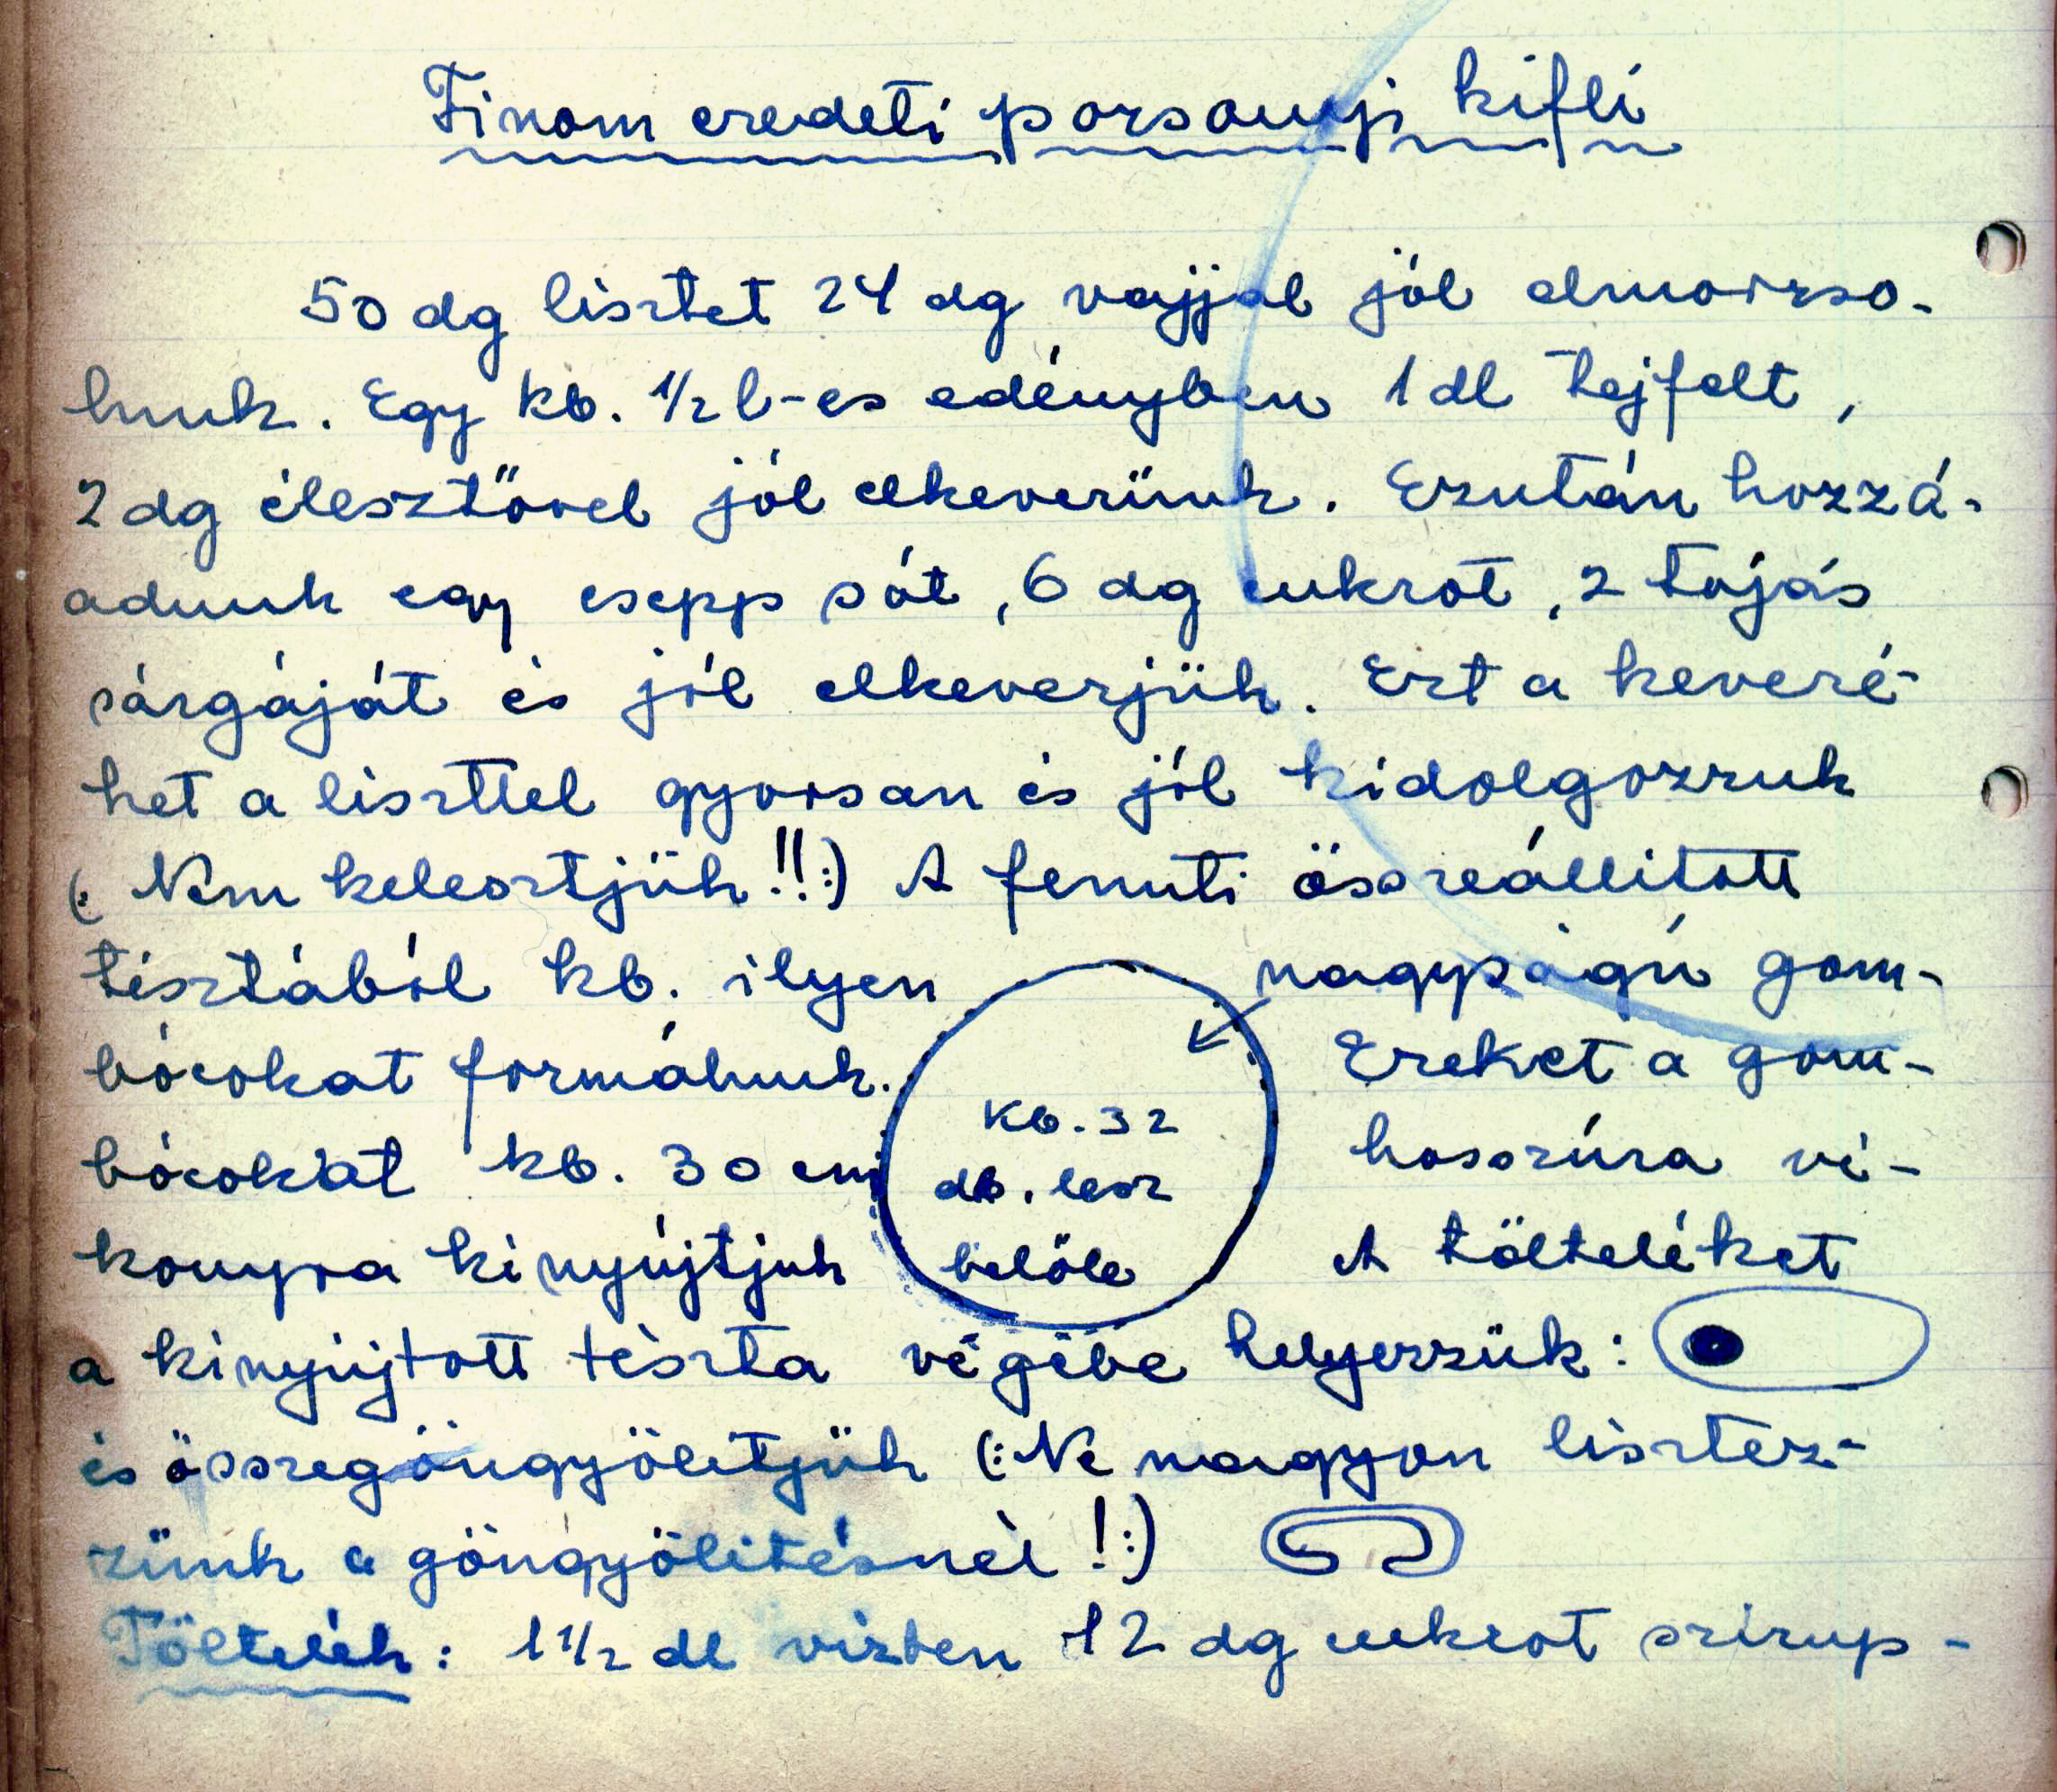 Finom eredeti porsonyi kifli
50 dg lisztet 24 dg vajjal jól elmorzso-
lunk. Egy kb. 1/2 l-es edényben 1 dl tejfelt,
2 dg élesztővel jól elkeverünk. Ezután hozzá-
adunk egy csepp sót, 6 dg cukrot, 2 tojás
sárgáját és jól elkeverjük. Ezt a keveré-
ket a liszttel gyorsan és jól kidolgozzuk
(: Nem kelesztjük!!:) A fennti összeállított
tésztából kb. ilyen nagyságú gom-
bócokat formálunk. Ezeket a gom-
bócokat kb. 30 cm hosszúra vé-
konyra kinyújtjuk A tölteléket
kb. 32
db. lesz
belőle
a kinyújtott tészta végébe helyezzük:
és összegöngyölítjük (: Ne nagyon lisztez-
zünk a göngyölítésnél!:)
Töltelék: 1 1/2 dl vízben 12 dg cukrot szirup-